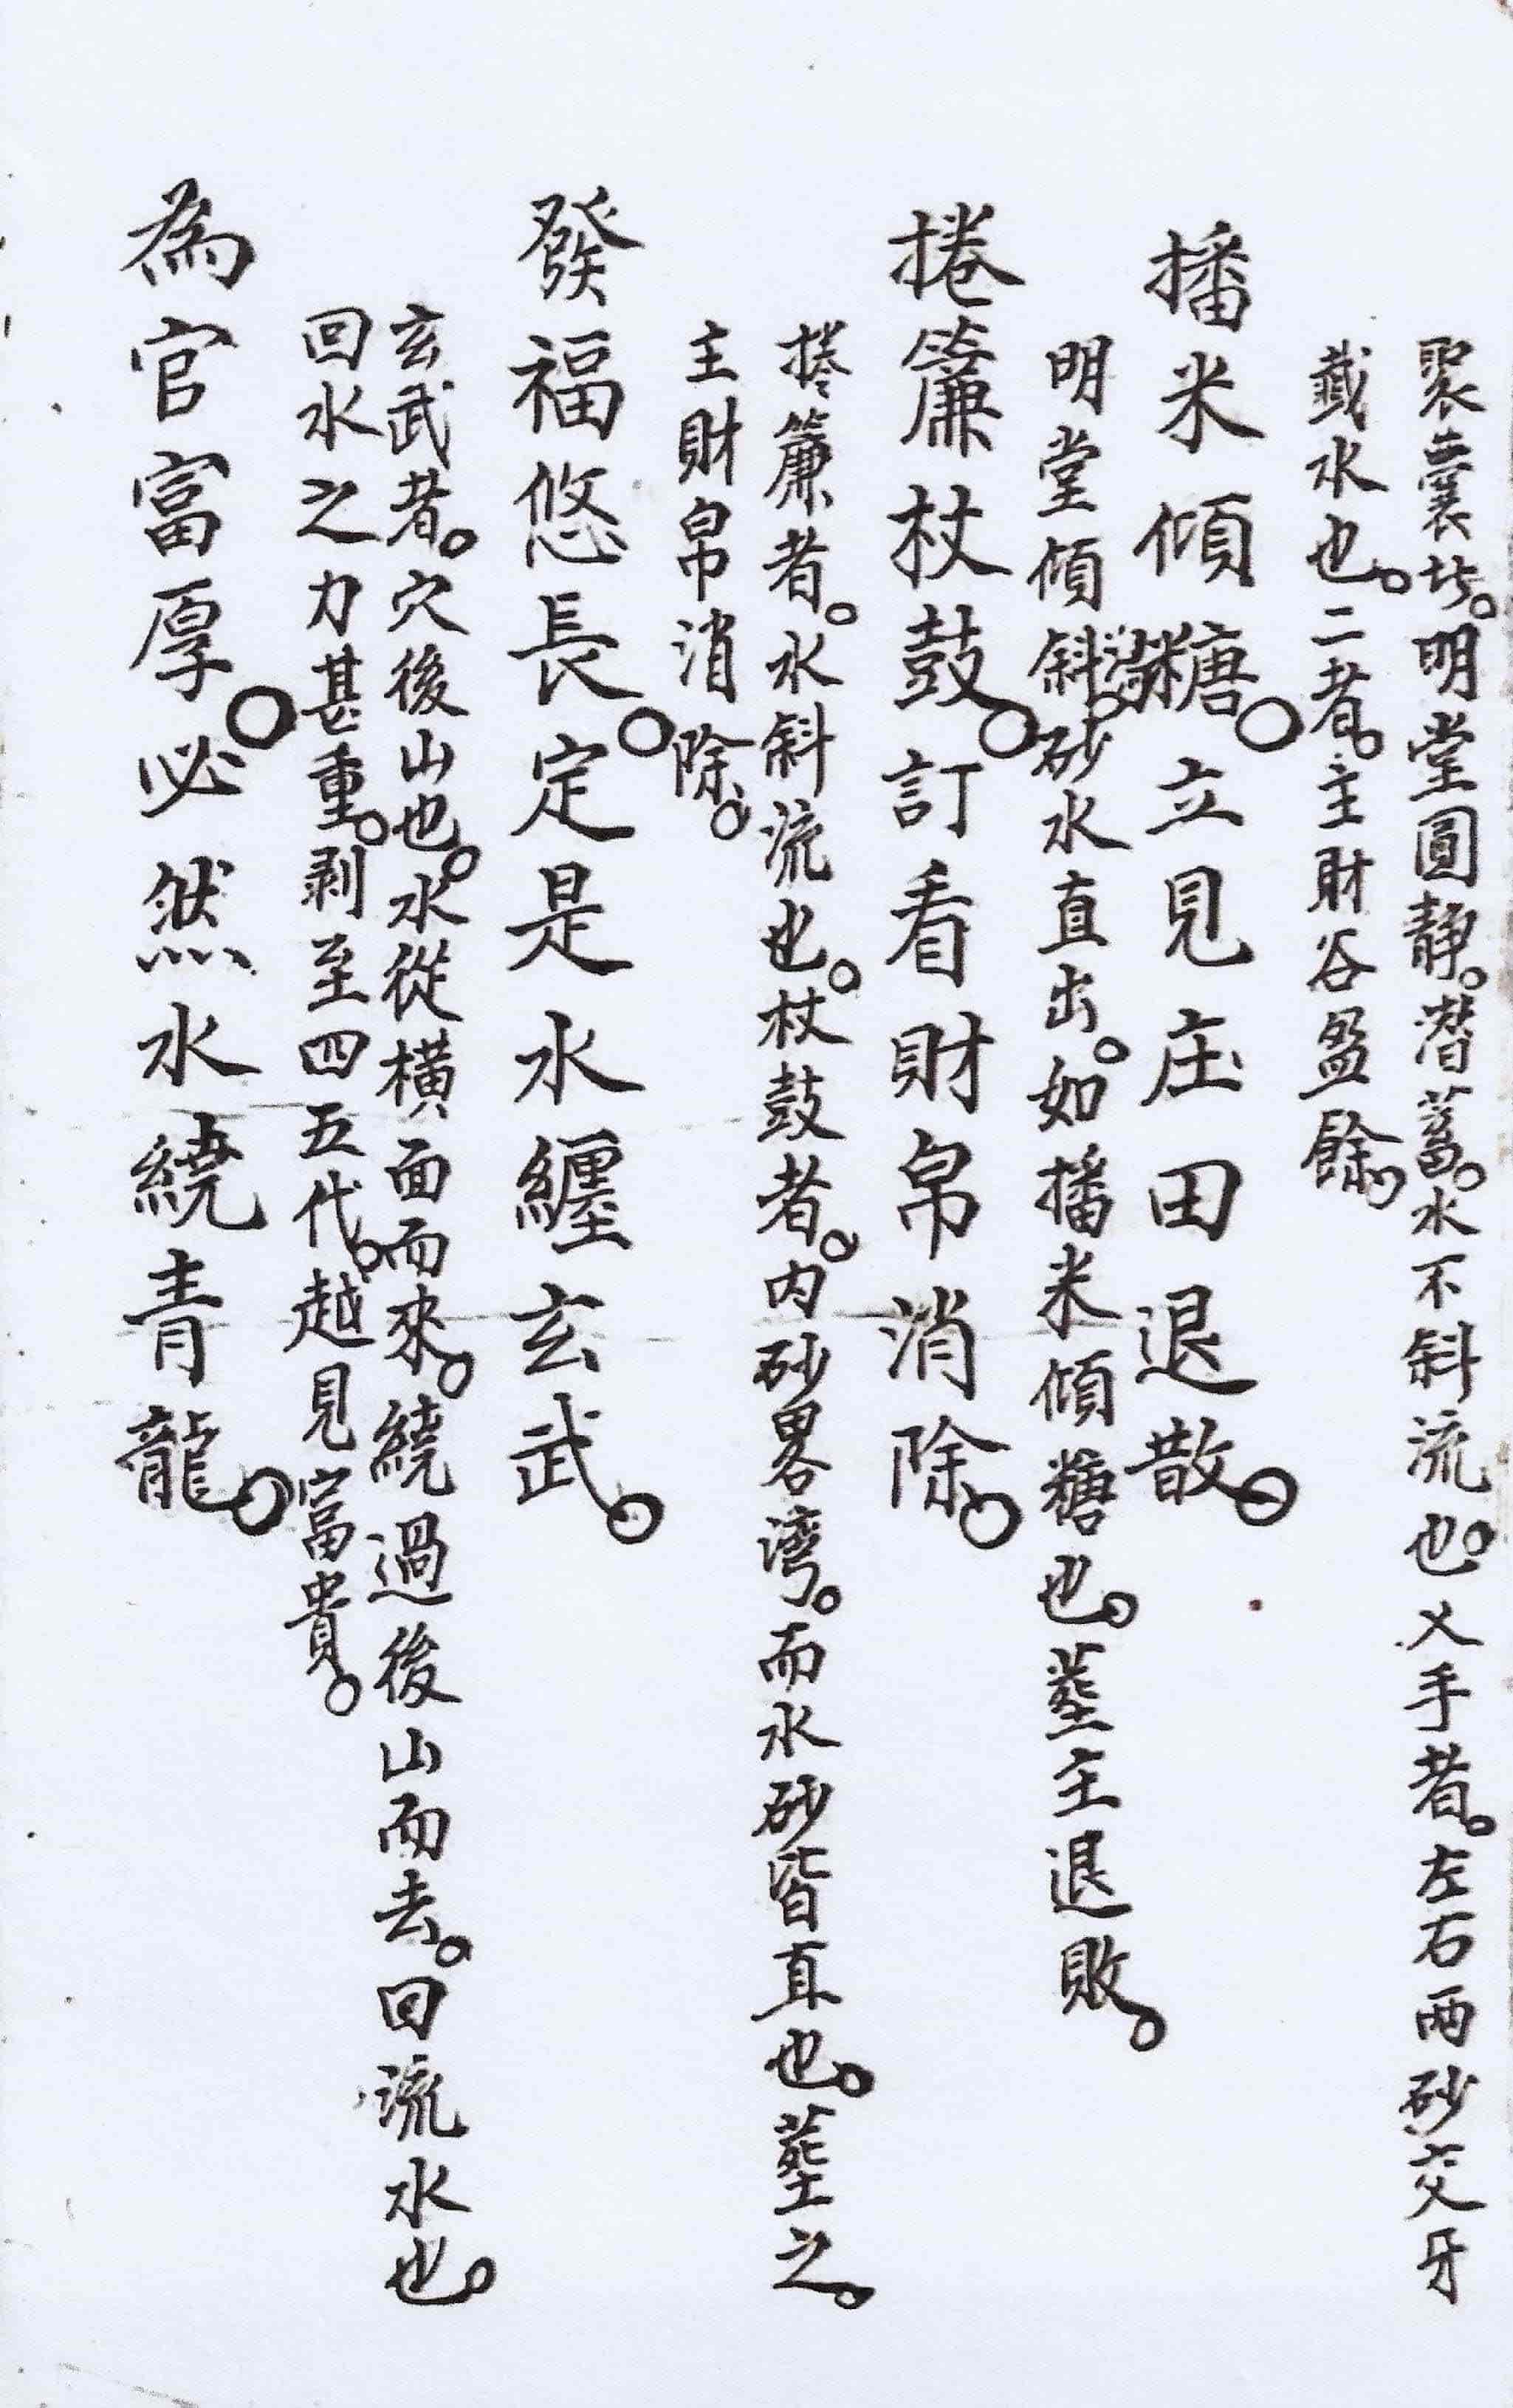 聚囊者。明堂圓静。潜蓄。水不斜流也。乂手者。左右兩砂交牙
藏水也。二者。主財谷盈餘。
播米傾糖。立見庄田退散。
明堂傾斜。砂水直出。如播米傾糖也。塟主退敗。
捲簾杖鼓。訂看財帛消除。
捲簾者。水斜流也。杖鼓者。内砂畧湾。而水砂皆直也。塟之。
主財帛消除。
發福悠長。定是水纒玄武。
玄武者。穴後山也。水從横面而來。繞過後山而去。回流水也。
回水之力甚重。剥至四五代。越見富貴。
為官富厚。必然水繞青龍。